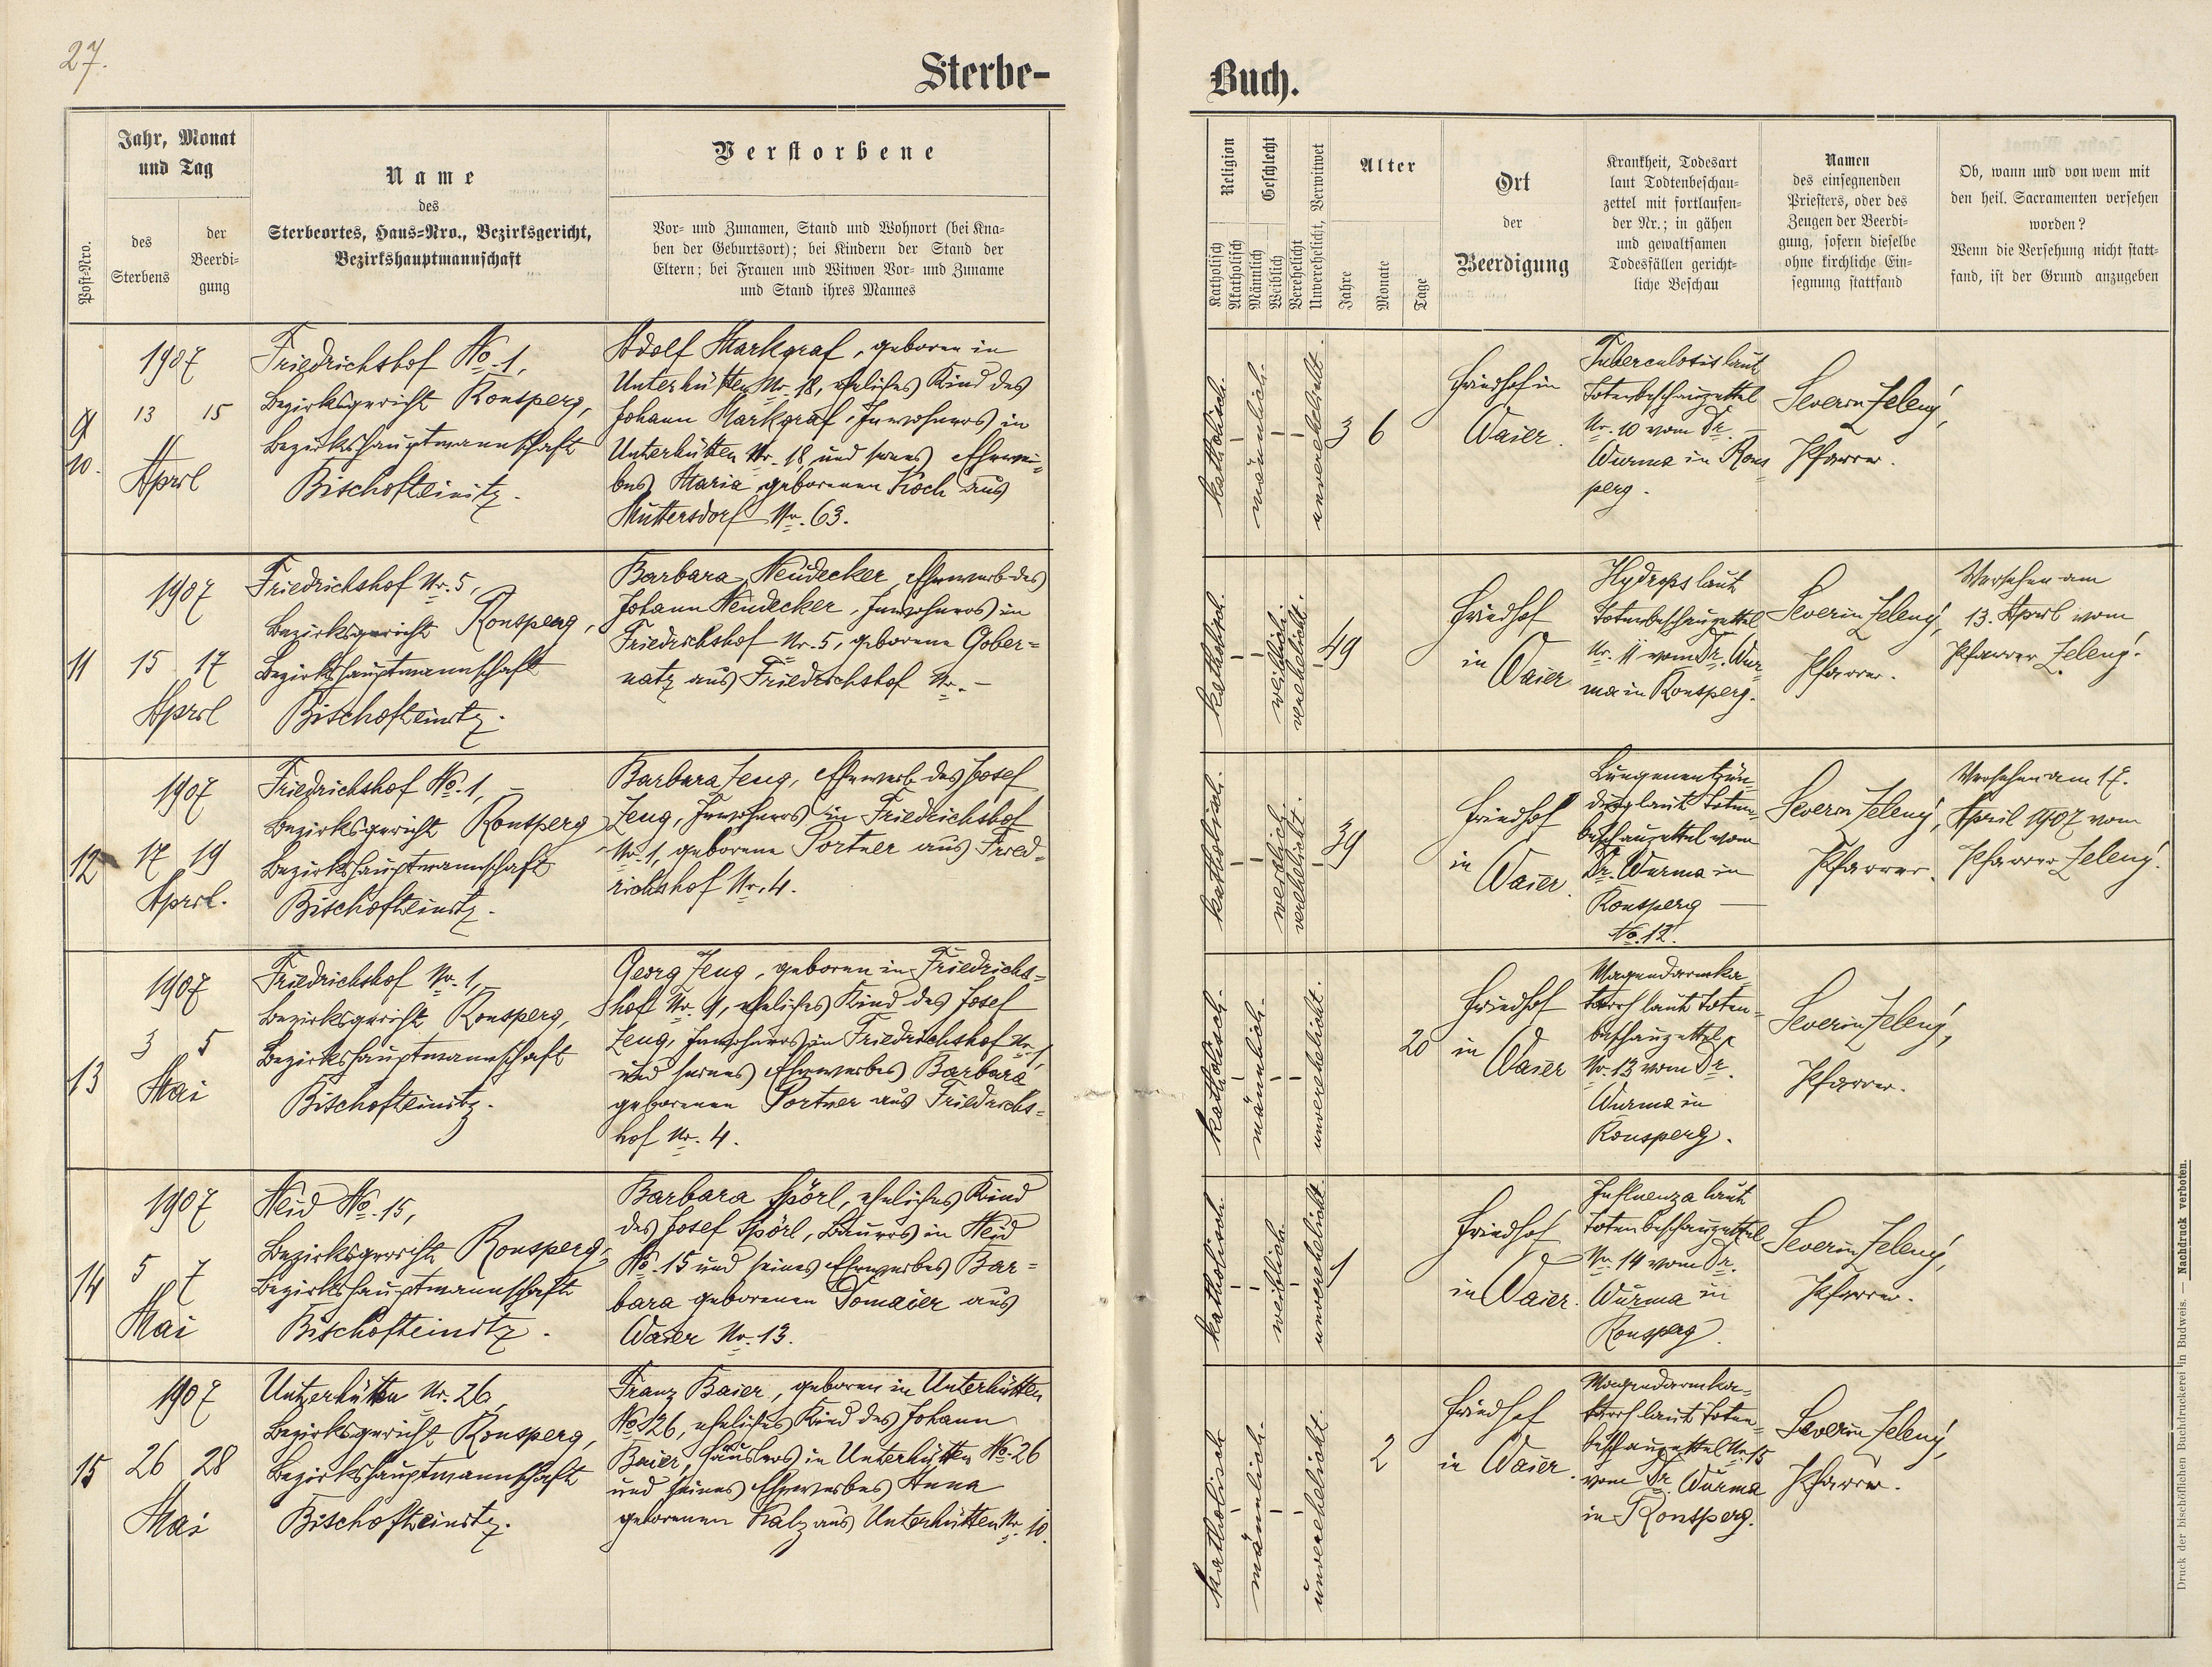 27.
Sterbe-
Buch.
Post-Nro.
Jahr, Monat
und Tag
des
Sterbens
der
Beerdi-
gung
Name
des
Sterbeortes, Haus-Nro., Bezirksgericht,
Bezirkshauptmannschaft
Verstorbene
Vor- und Zunamen, Stand und Wohnort (bei Kna-
ben der Geburtsort); bei Kindern der Stand der
Eltern; bei Frauen und Witwen Vor- und Zuname
und Stand ihres Mannes
Religion
Katholisch
Akatholisch
Geschlecht
Männlich
Weiblich
Verehelicht
Unverehelicht, Verwitwet
Alter
Jahre
Monate
Tage
Ort
der
Beerdigung
Krankheit, Todesart
laut Todtenbeschau-
zettel mit fortlaufen-
der Nr.; in gähen
und gewaltsamen
Todesfällen gericht-
liche Beschau
Namen
des einsegnenden
Priesters, oder des
Zeugen der Beerdi-
gung, sofern dieselbe
ohne kirchliche Ein-
segnung stattfand
Ob, wann und von wem mit
den heil. Sacramenten versehen
worden?
Wenn die Versehung nicht statt-
fand, ist der Grund anzugeben
9
10.
1907
13 15
April
Friedrichshof No. 1,
Bezirksgericht Ronsperg,
Bezirkshauptmannschaft
Bischofteinitz.
Adolf Markgraf, geboren in
Unterhütten Nr. 18, eheliches Kind des
Johann Markgraf, Inwohners in
Unterhütten Nr. 18 und seines Ehewei-
bes Maria geborenen Koch aus
Muttersdorf Nr. 63.
katholisch.
männlich.
unverehelicht.
3 6
Friedhof in
Waier.
Tuberculosis laut
Totenbeschauzettel
Nr. 10 vom Dr.
Wurma in Rons
perg.
Severin Zelený,
Pfarrer.
11
1907
15 17
April
Friedrichshof Nr. 5,
Bezirksgericht Ronsperg,
Bezirkshauptmannschaft
Bischofteinitz.
Barbara Neudecker, Eheweib des
Johann Neudecker, Inwohners in
Friedrichshof Nr. 5, geborene Gober=
natz aus Friedrichshof Nr. –
katholisch.
weiblich.
verehelicht.
49
Friedhof
in Waier
Hydrops laut
Totenbeschauzettel
Nr. 11 vom Dr. Wur
ma in Ronsperg.
Severin Zelený,
Pfarrer.
Versehen am
13. April vom
Pfarrer Zelený.
12
1907
17 19
April.
Friedrichshof No. 1, –
Bezirksgericht Ronsperg
Bezirkshauptmannschaft
Bischofteinitz.
Barbara Zeug, Eheweib des Josef
Zeug, Inwohners in Friedrichshof
Nr. 1, geborene Portner aus Fried-
richshof Nr. 4.
katholisch.
weiblich.
verehelicht.
39
Friedhof
in Waier.
Lungenentzün
dung laut Toten-
beschauzettel vom
Dr. Wurma in
Ronsperg –
No. 12.
Severin Zelený,
Pfarrer.
Versehen am 17.
April 1907 vom
Pfarrer Zelený.
13
1907
3 5
Mai
Friedrichshof Nr. 1, –
Bezirksgericht Ronsperg,
Bezirkshauptmannschaft
Bischofteinitz.
Georg Zeug, geboren in Friedrichs=
hof Nr. 1, eheliches Kind des Josef
Zeug, Inwohners in Friedrichshof Nr. 1
und seines Eheweibes Barbara
geborenen Portner aus Friedrichs=
hof Nr. 4.
katholisch.
männlich.
unverehelicht.
20
Friedhof
in Waier
Magendarmka
tarrh laut Toten-
beschauzettel
Nr. 13 vom Dr.
Wurma in
Ronsperg.
Severin Zelený,
Pfarrer.
14
1907
5 7
Mai
Heid No. 15,
Bezirksgericht Ronsperg,
Bezirkshauptmannschaft
Bischofteinitz.
Barbara Spörl, eheliches Kind
des Josef Spörl, Bauers in Heid
No. 15 und seines Eheweibes Bar=
bara geborenen Domaier aus
Waier Nr. 13.
katholisch.
weiblich.
unverehelicht.
1
Friedhof
in Waier.
Influenza laut
Totenbeschauzettel
Nr. 14 vom Dr.
Wurma in
Ronsperg.
Severin Zelený,
Pfarrer.
15
1907
26 28
Mai
Unterhütten Nr. 26,
Bezirksgericht Ronsperg,
Bezirkshauptmannschaft
Bischofteinitz.
Franz Baier, geboren in Unterhütten
No. 26, eheliches Kind des Johann
Baier, Häuslers in Unterhütten No. 26
und seines Eheweibes Anna
geborenen Kalz aus Unterhütten Nr. 10.
katholisch
männlich.
unverehelicht.
2
Friedhof
in Waier.
Magendarmka=
tarrh laut Toten=
beschauzettel Nr. 15
vom Dr. Wurma
in Ronsperg.
Severin Zelený,
Pfarrer.
Druck der bischöflichen Buchdruckerei in Budweis. — Nachdruck verboten.